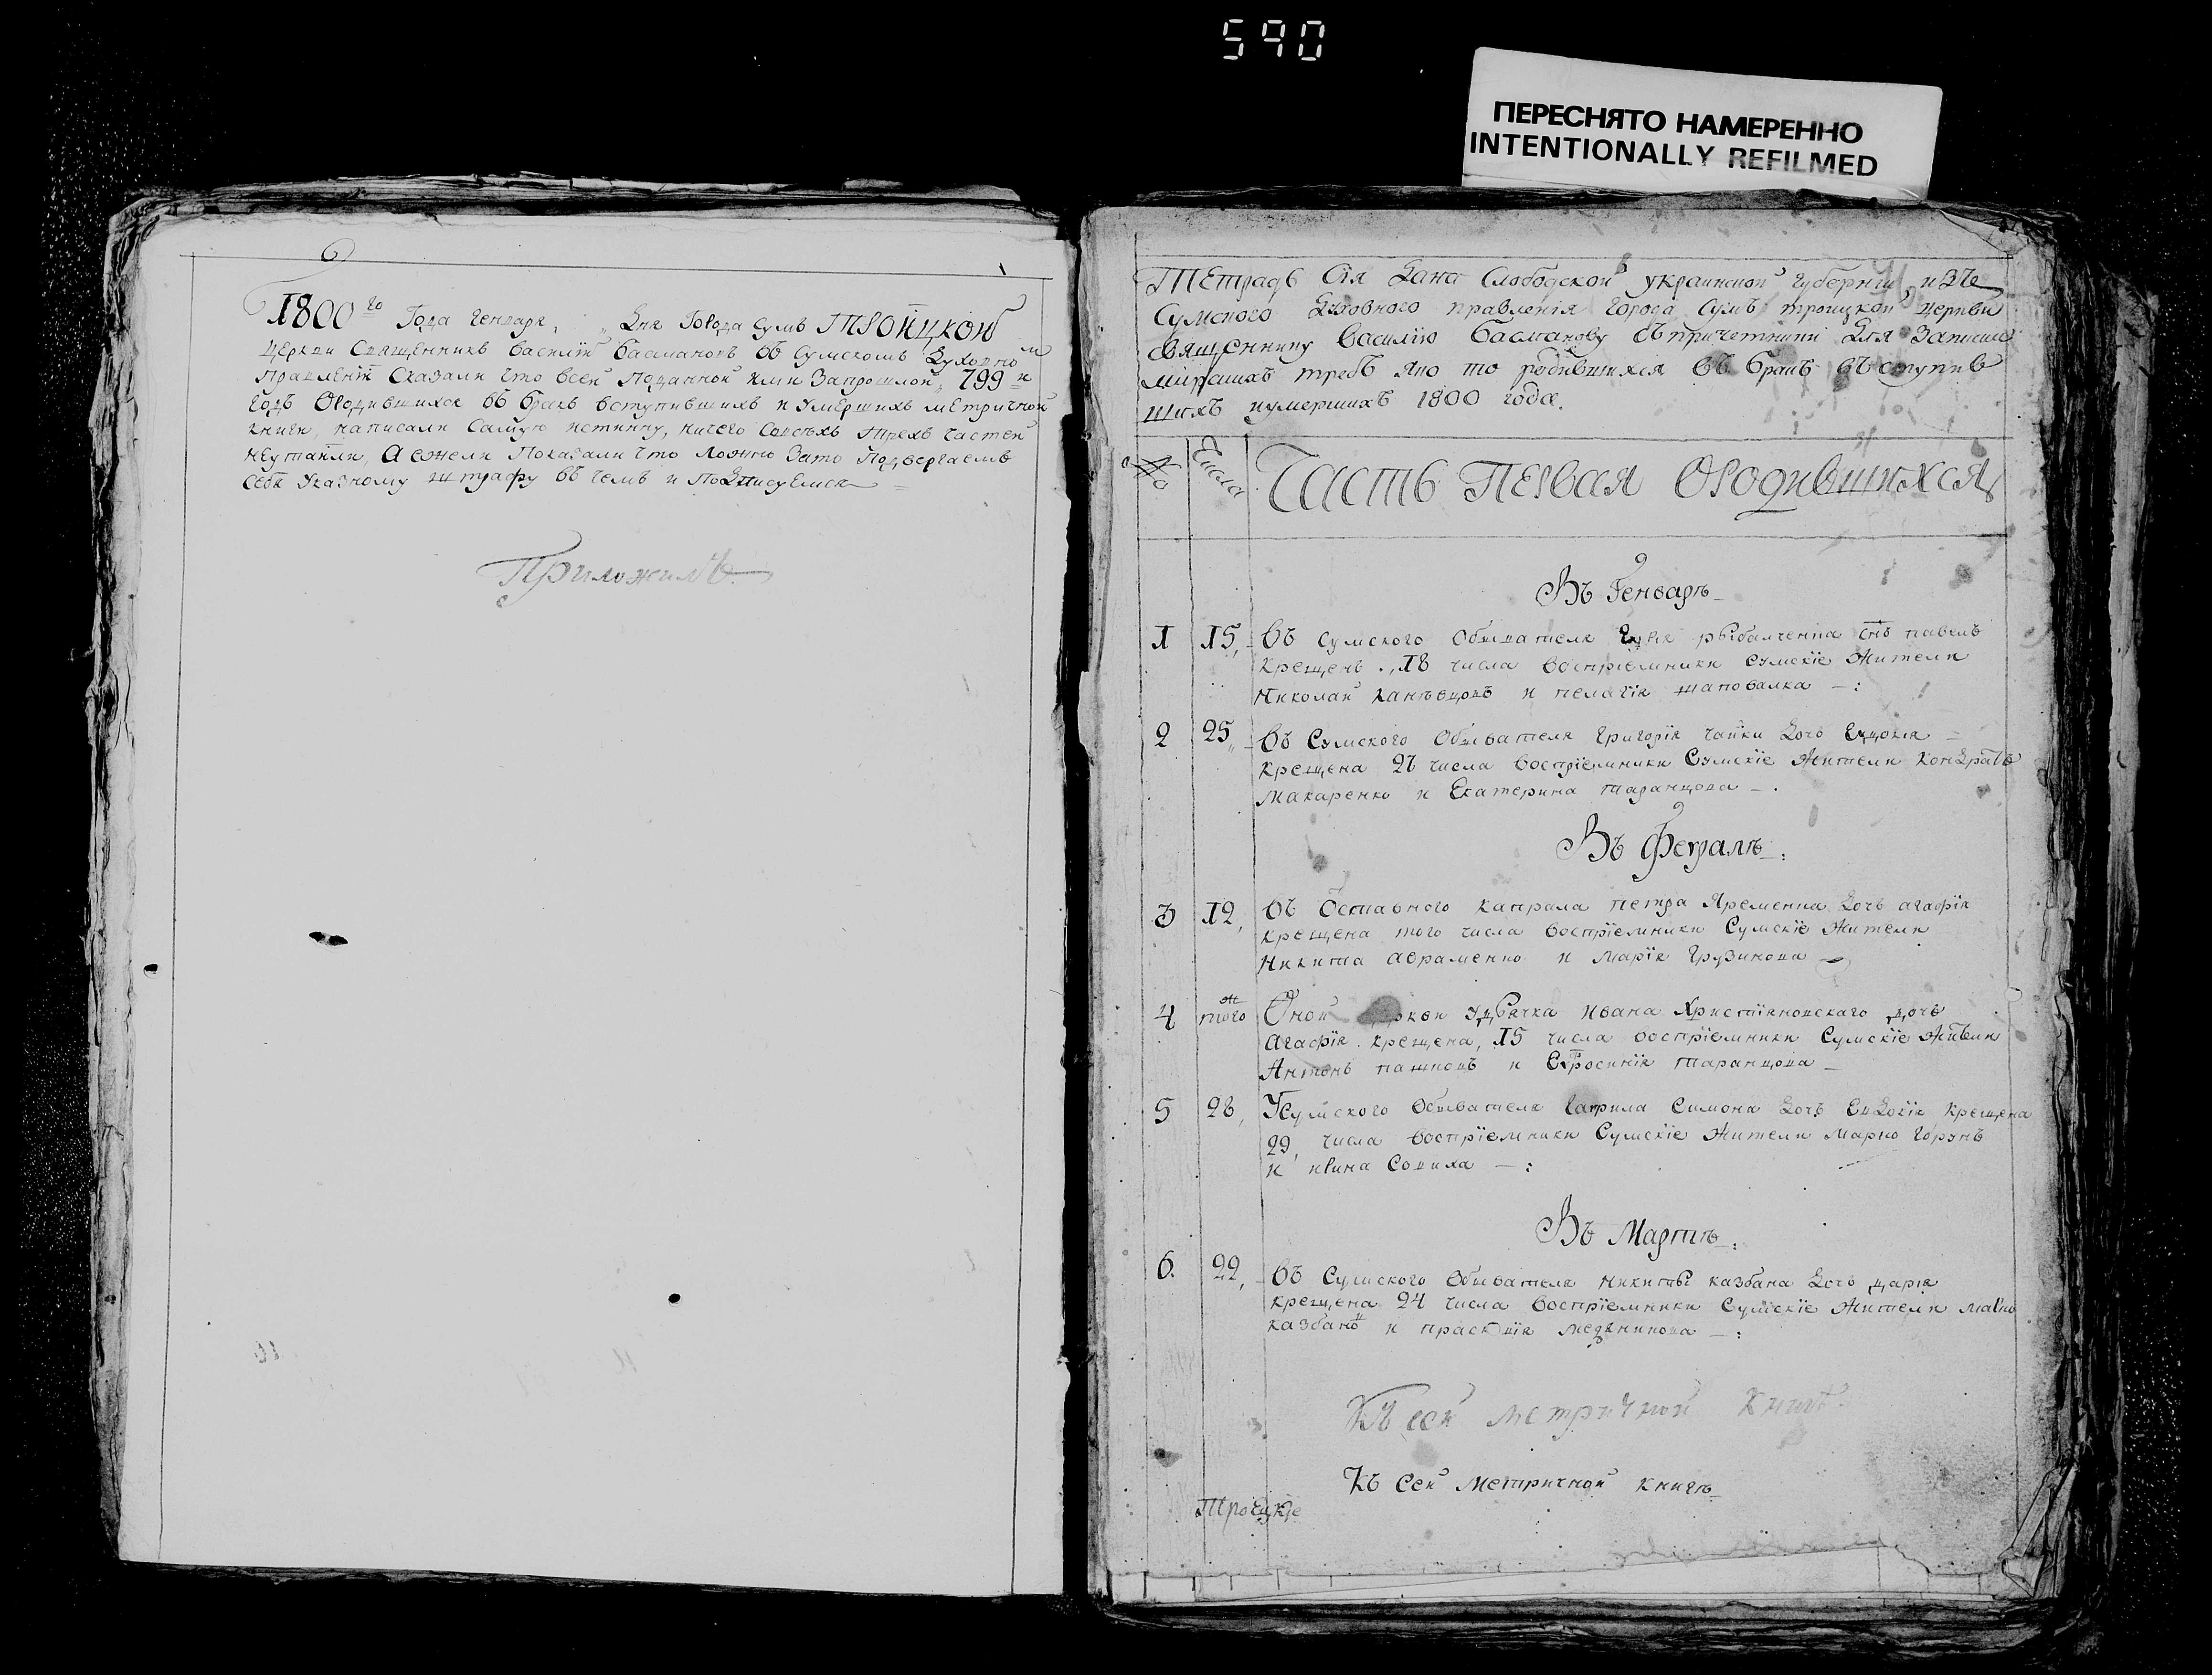 590
ПЕРЕСНЯТО НАМЕРЕННО
INTENTIONALLY REFILMED
1800го Года Генваря, „ Дня Города Сумъ ТРОИЦКОЙ
Церкви Священникъ Василій Басмановъ Въ Сумскомъ Духовном
Правленіи Сказали Что Всей Поданной ими Запрошлой „ 799 й
Годъ Ородившихся Въ бракъ вступившихъ и Умершихъ метричной
книги, написали Самую истинну, ничего Совсѣхъ Трехъ частей
неутаили, А ежели Показали Что Ложно Зато Подвергаемъ
Себя Указному штрафу Въ чемъ и Подписуемся
Приложилъ
Тетрадь Сія Дана Слободской украинской губерніи, изъ
Сумского Духовного правленія города Сумъ троицкой Церкви
Священнику Василію Басманову съ причетники Для Записки
мирскихъ требъ яко то родившихся въ бракъ въступив
шихъ иумершихъ 1800 года.
№
Числа
Часть Первая Ородившихся
Въ Генварѣ
1 15, Въ Сумского Обывателя рыбалченка снъ павелъ
крещенъ „ 18 числа Воспріемники Сумскіе Жители
Николай канѣвцовъ и пелагія шаповалка — :
2 25, Въ Сумского Обывателя Григорія чайки Дочь Евдокія
крещена 28 числа Воспріемники Сумскіе Жители Кондратъ
Макаренко и Екатерина таранцова — .
Въ Февралѣ :
3 12, Въ Оставного капрала петра Яременка Дочь агафія
крещена того числа Воспріемники Сумскіе Жители
Никита авраменко и Марія Грузинова
4 того ж Оной церкви Удячка Ивана Христіяновскаго дочь
Агафія крещена, 15 числа воспріемники Сумскіе Жители
Антонъ пашковъ и Ефросинія таранцова
5 28, Усумского Обывателя Гаврила Симона Дочь Евдокія крещена
29, числа Воспріемники Сумскіе Жители Марко Горунъ
и ирина Совиха — :
Въ Мартѣ :
6. 22, Въ Сумского Обывателя Никиты казбана Дочь дарія
крещена 24 числа Воспріемники Сумскіе Жители
казбанъ и прасковія медяникова — :
Къ сей метричной Книгѣ.
Къ Сей Метричной книгѣ
Троецкіе